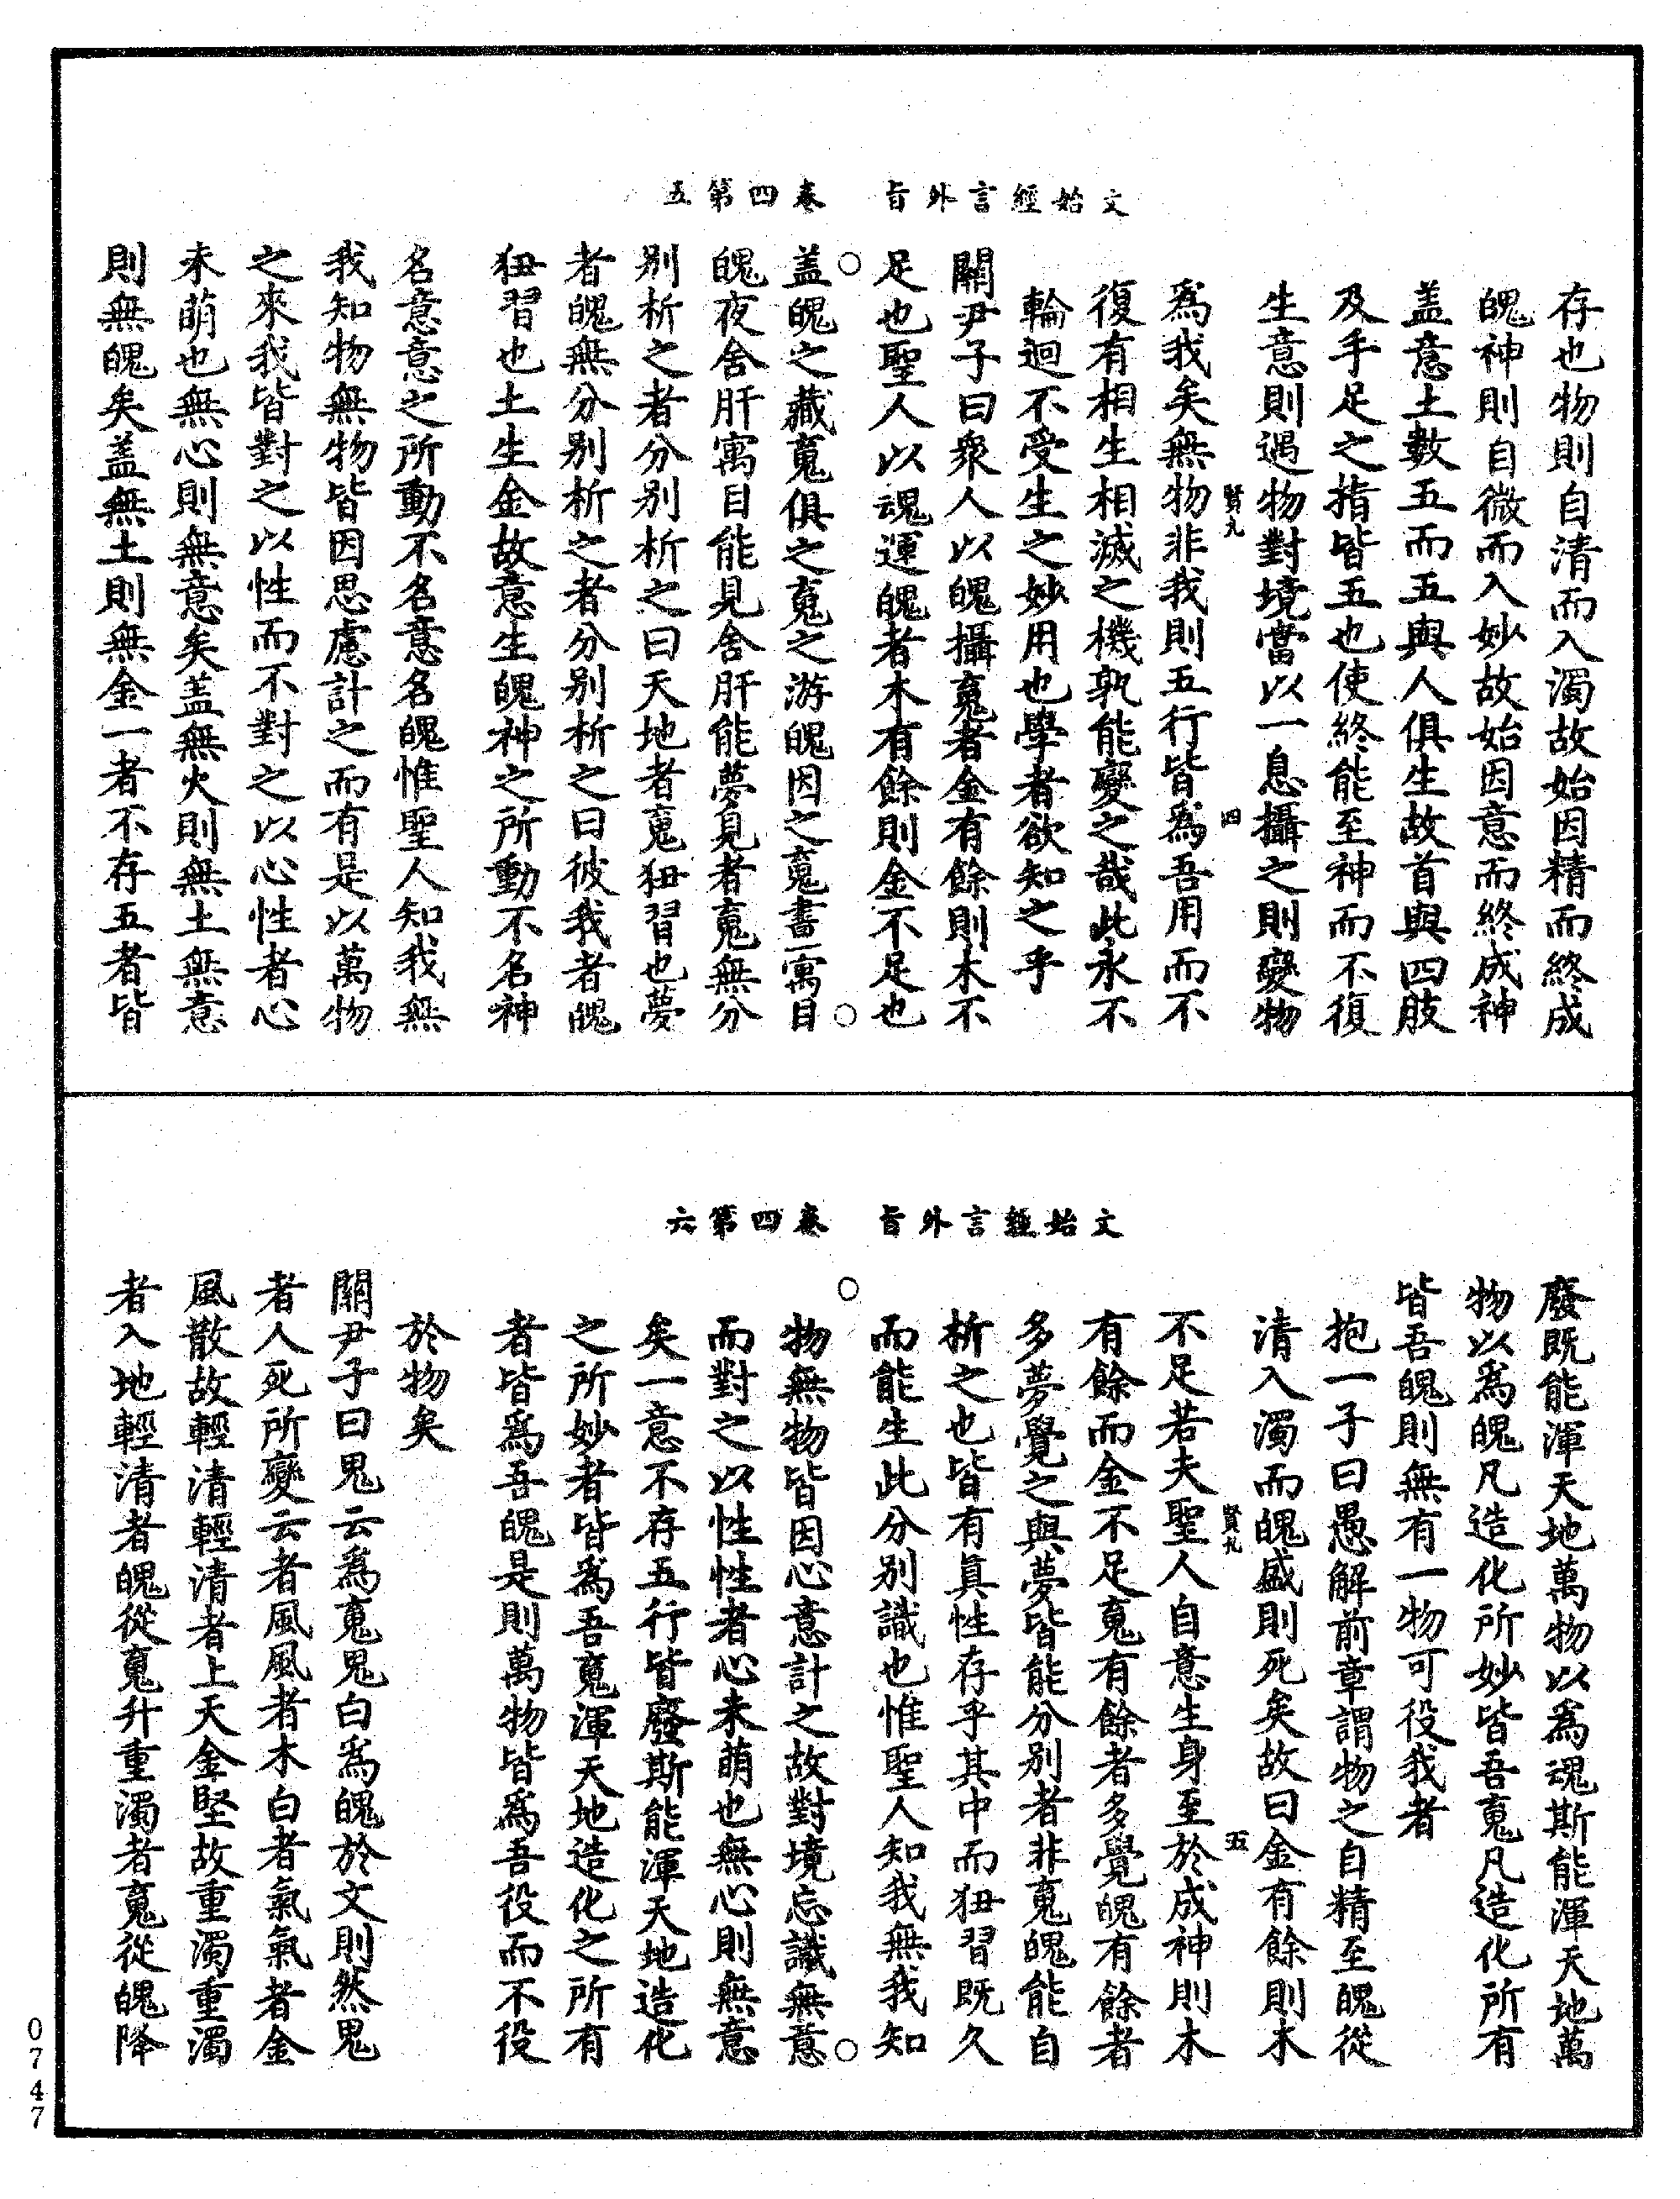 文始經言外旨　卷四第五
存也物則自清而入濁故始因精而終成
魄神則自微而入妙故始因意而終成神
盖意土數五而五與人俱生故首與四肢
及手足之指皆五也使終能至神而不復
生意則遇物對境當以一息攝之則變物
賢九　四
爲我矣無物非我則五行皆爲吾用而不
復有相生相滅之機孰能變之哉此永不
輪迴不受生之妙用也學者欲知之乎
關尹子曰衆人以魄攝䰟者金有餘則木不
足也聖人以魂運魄者木有餘則金不足也
盖魄之藏䰟俱之䰟之游魄因之䰟晝寓目
魄夜舍肝寓目能見舍肝能夢見者䰟無分
别析之者分别析之曰天地者䰟狃習也夢
者魄無分别析之者分别析之曰彼我者魄
狃習也土生金故意生魄神之所動不名神
名意意之所動不名意名魄惟聖人知我無
我知物無物皆因思慮計之而有是以萬物
之來我皆對之以性而不對之以心性者心
未萌也無心則無意矣盖無火則無土無意
則無魄矣盖無土則無金一者不存五者皆
文始經言外旨　卷四第六
廢既能渾天地萬物以爲魂斯能渾天地萬
物以爲魄凡造化所妙皆吾䰟凡造化所有
皆吾魄則無有一物可役我者
抱一子曰愚解前章謂物之自精至魄從
清入濁而魄盛則死矣故曰金有餘則木
賢九　五
不足若夫聖人自意生身至於成神則木
有餘而金不足䰟有餘者多覺魄有餘者
多夢覺之與夢皆能分别者非䰟魄能自
析之也皆有眞性存乎其中而狃習既久
而能生此分别識也惟聖人知我無我知
物無物皆因心意計之故對境忘識無意
而對之以性性者心未萌也無心則無意
矣一意不存五行皆廢斯能渾天地造化
之所妙者皆爲吾䰟渾天地造化之所有
者皆爲吾魄是則萬物皆爲吾役而不役
於物矣
關尹子曰鬼云爲䰟鬼白爲魄於文則然鬼
者人死所變云者風風者木白者氣氣者金
風散故輕清輕清者上天金堅故重濁重濁
者入地輕清者魄從䰟升重濁者䰟從魄降
0747